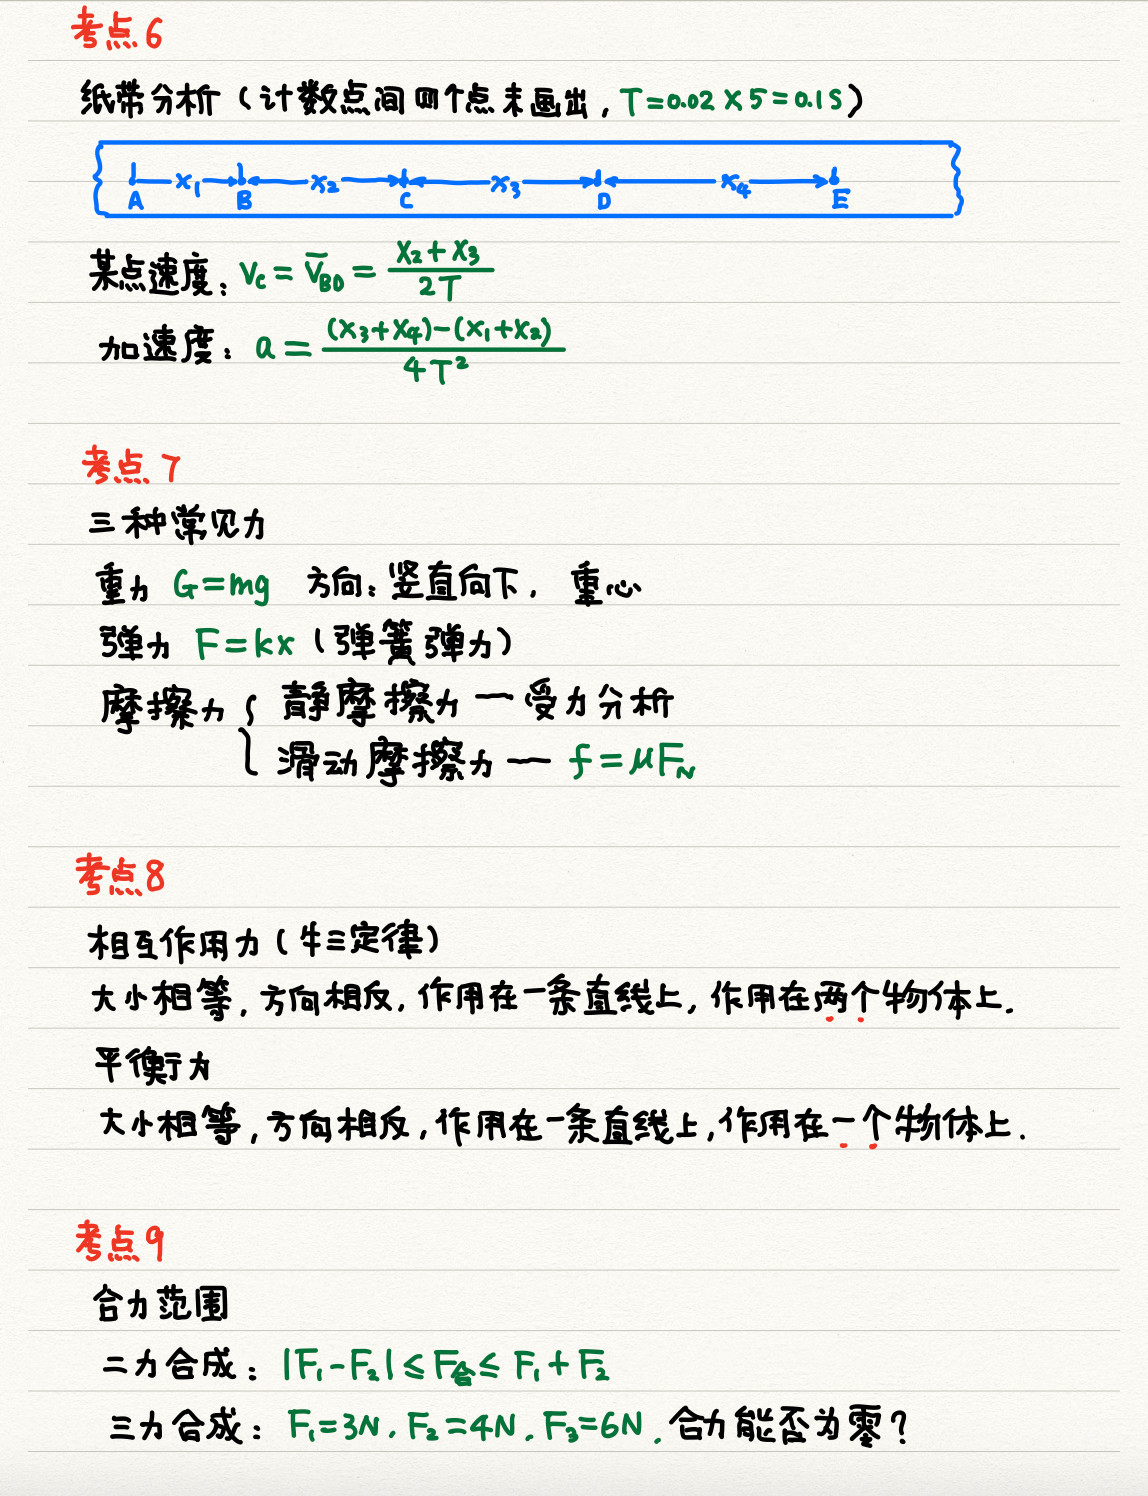 考点6
纸带分析（计数点间四个点未画出，T=0.02×5=0.1S）
x₁ x₂ x₃ x₄
A B C D E
某点速度：Vc = V̄BD = (x₂+x₃)/2T
加速度：a = ((x₃+x₄)-(x₁+x₂))/4T²
考点7
三种常见力
重力 G=mg 方向：竖直向下， 重心
弹力 F=kx（弹簧弹力）
摩擦力 { 静摩擦力 — 受力分析
滑动摩擦力 — f=μF_N
考点8
相互作用力（牛三定律）
大小相等，方向相反，作用在一条直线上，作用在两个物体上.
平衡力
大小相等，方向相反，作用在一条直线上，作用在一个物体上.
考点9
合力范围
二力合成：|F₁-F₂|≤F合≤F₁+F₂
三力合成：F₁=3N，F₂=4N，F₃=6N，合力能否为零？